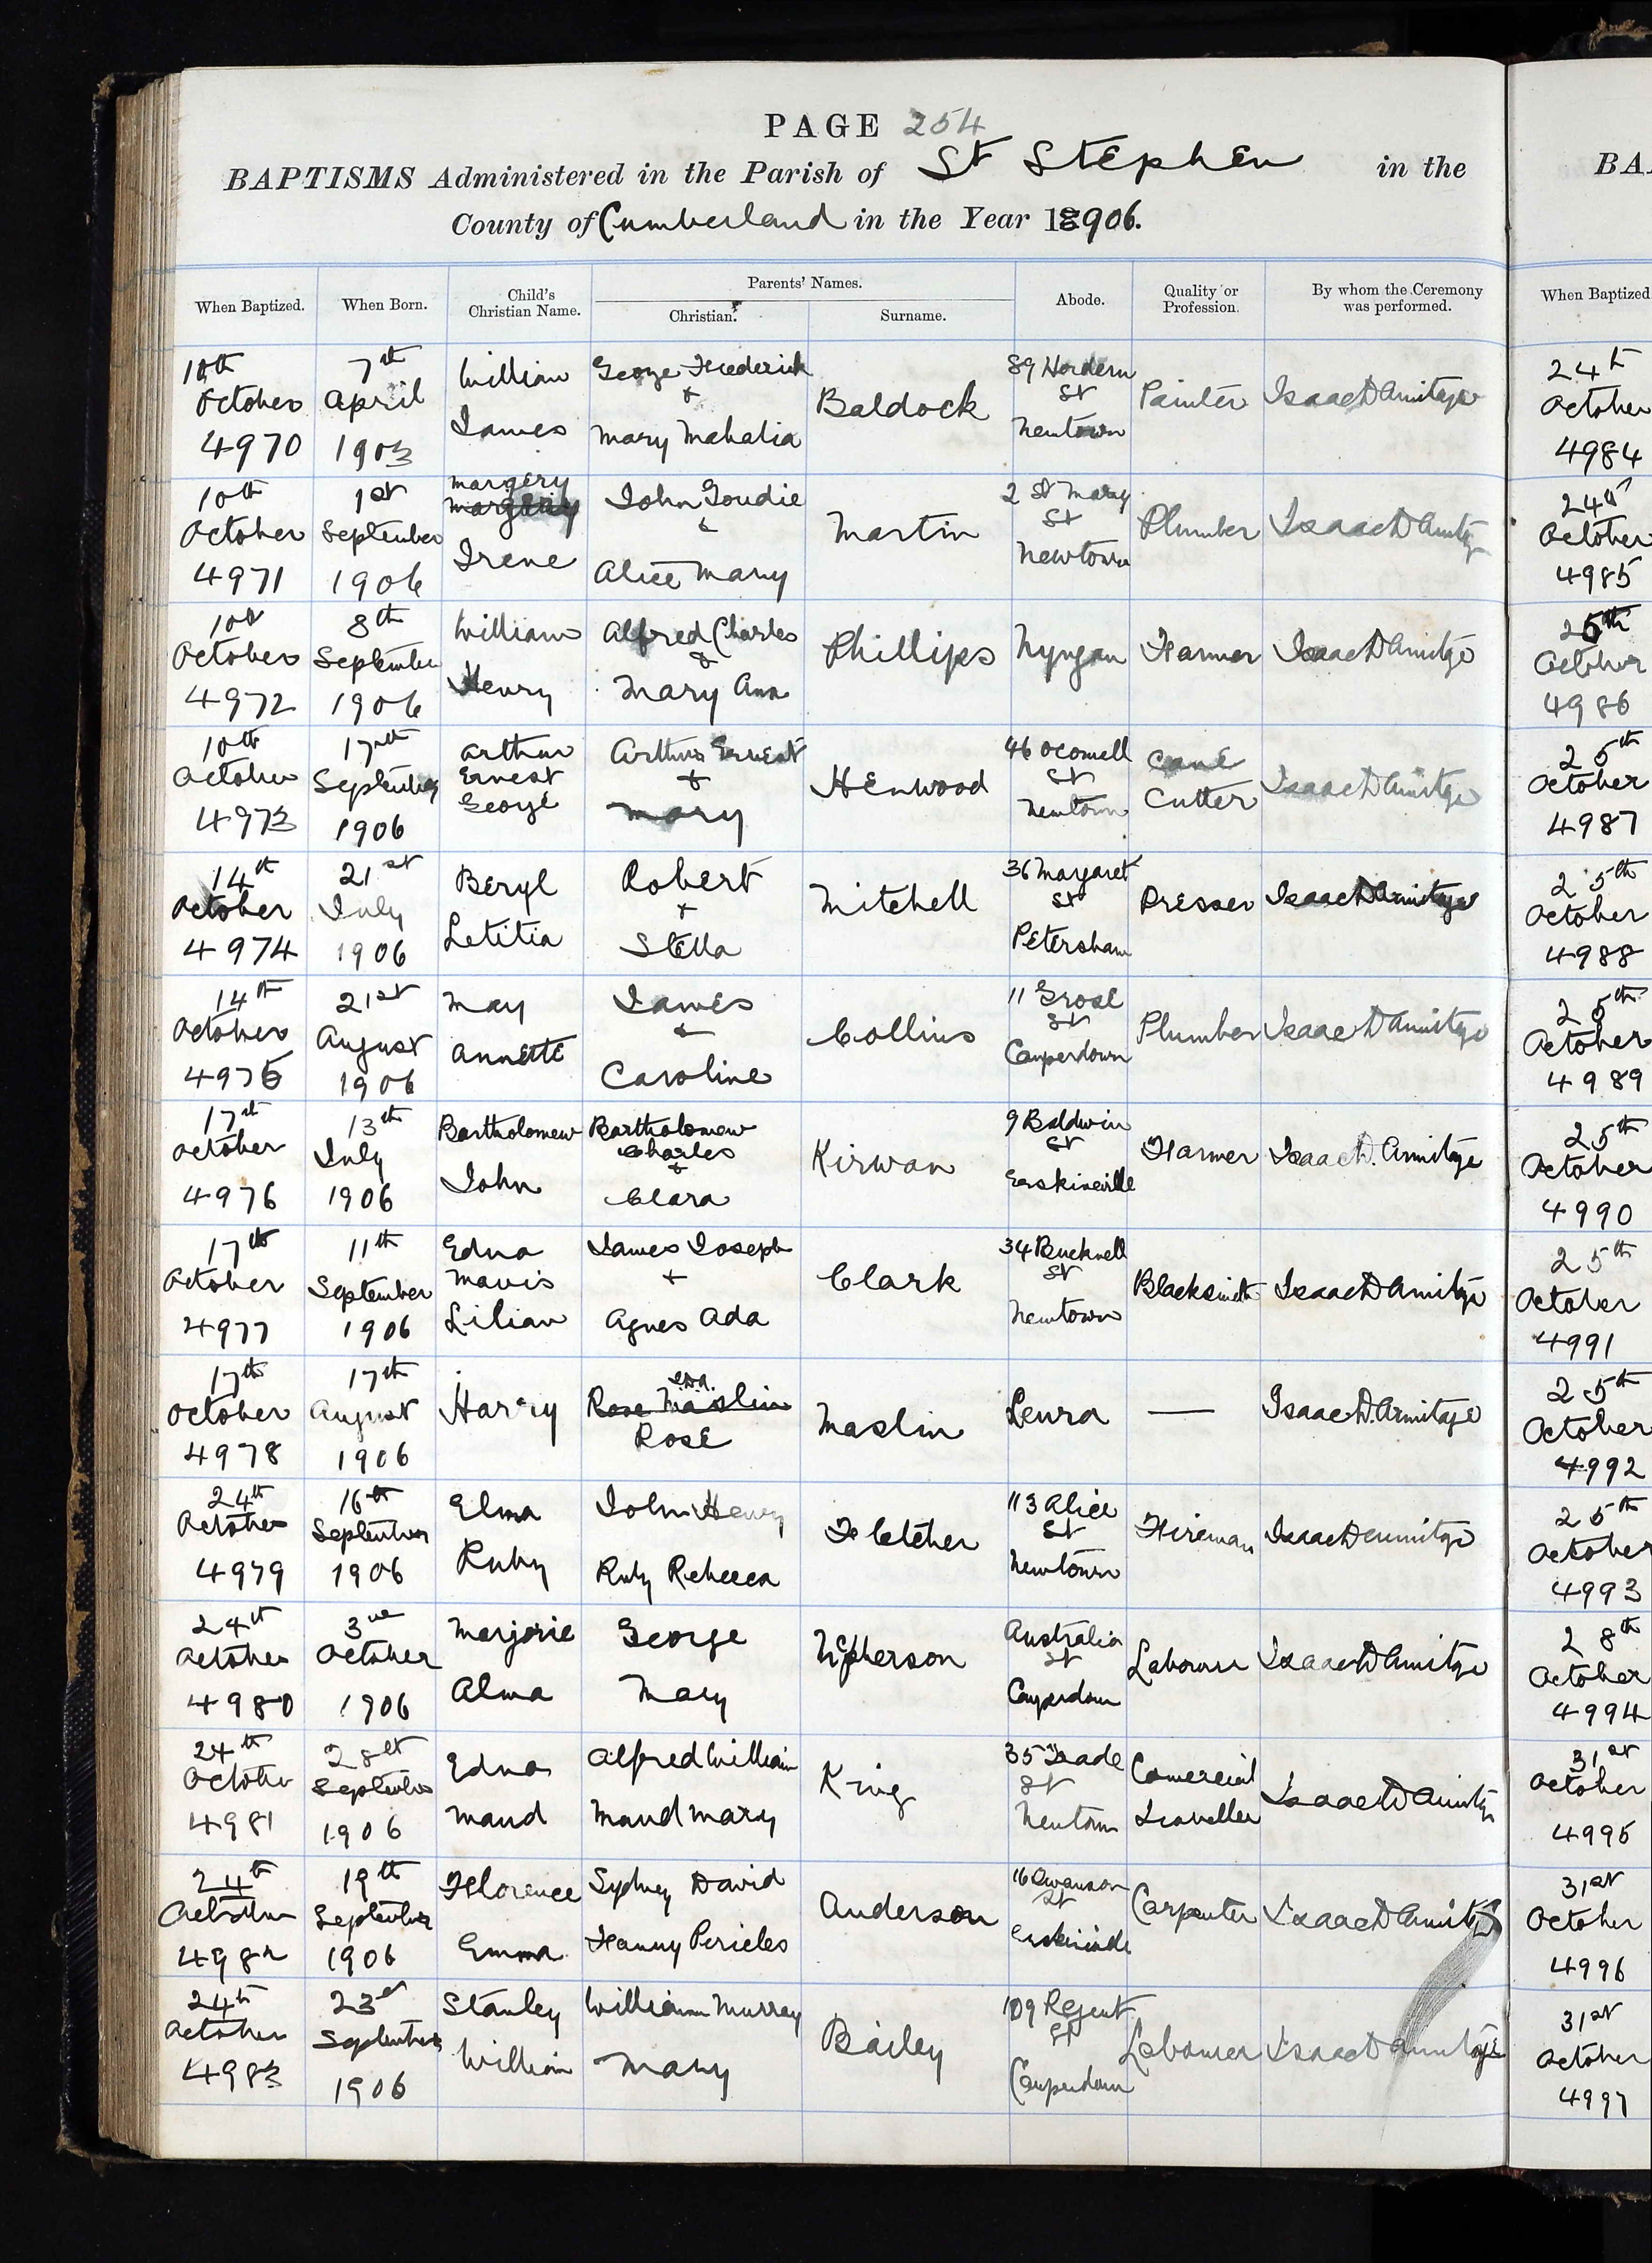 PAGE 254
BAPTISMS Administered in the Parish of St Stephen in the
County of Cumberland in the Year 18906.
When Baptized. When Born. Child's Christian Name. Parents' Names. Christian. Surname. Abode. Quality or Profession. By whom the Ceremony was performed.
10th October 4970 7th April 1903 William James George Frederick & Mary Mahalia Baldock 89 Hordern St Newtown Painter Isaac D Armitage
10th October 4971 1st September 1906 Margery Irene John Goudie & Alice Mary Martin 2 St Mary St Newtown Plumber Isaac D Armitage
10th October 4972 8th September 1906 William Henry Alfred Charles & Mary Ann Phillips Nyngan Farmer Isaac D Armitage
10th October 4973 17th September 1906 Arthur Ernest George Arthur Ernest & Mary Henwood 46 OConnell St Newtown Cane Cutter Isaac D Armitage
14th October 4974 21st July 1906 Beryl Letitia Robert & Stella Mitchell 36 Margaret St Petersham Presser Isaac D Armitage
14th October 4975 21st August 1906 May Annette James & Caroline Collins 11 Grose St Camperdown Plumber Isaac D Armitage
17th October 4976 13th July 1906 Bartholomew John Bartholomew Charles & Clara Kirwan 9 Baldwin St Erskineville Farmer Isaac D. Armitage
17th October 4977 11th September 1906 Edna Mavis Lilian James Joseph & Agnes Ada Clark 34 Bucknell St Newtown Blacksmith Isaac D Armitage
17th October 4978 17th August 1906 Harry Rose Maslin Rose Maslin Leura — Isaac D. Armitage
24th October 4979 16th September 1906 Elma Ruby John Henry Ruby Rebecca Fletcher 113 Alice St Newtown Fireman Isaac D Armitage
24th October 4980 3rd October 1906 Marjorie Alma George Mary McPherson Australia St Camperdown Labourer Isaac D Armitage
24th October 4981 28th September 1906 Edna Maud Alfred William Maud Mary King 35 Trade St Newtown Comercial Traveller Isaac D Armitage
24th October 4982 19th September 1906 Florence Emma Sydney David Fanny Pericles Anderson 16 Swanson St Erskineville Carpenter Isaac D Armitage
24th October 4983 23rd September 1906 Stanley William William Murray Mary Bailey 109 Regent St Camperdown Labourer Isaac D Armitage
BA
When Baptized
24th October 4984
24th October 4985
25th October 4986
25th October 4987
25th October 4988
25th October 4989
25th October 4990
25th October 4991
25th October 4992
25th October 4993
28th October 4994
31st October 4995
31st October 4996
31st October 4997